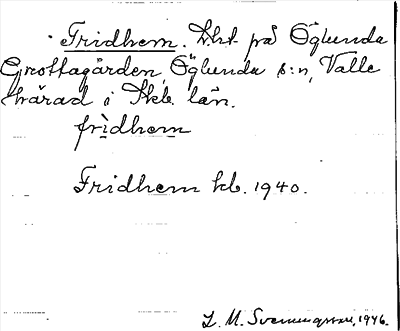 Fridhem. Lht på Öglunda
Grottagården, Öglunda s:n, Valle
härad i Skb. län.
frìdhem
Fridhem kb. 1940.
L. M. Svenningsson, 1946.